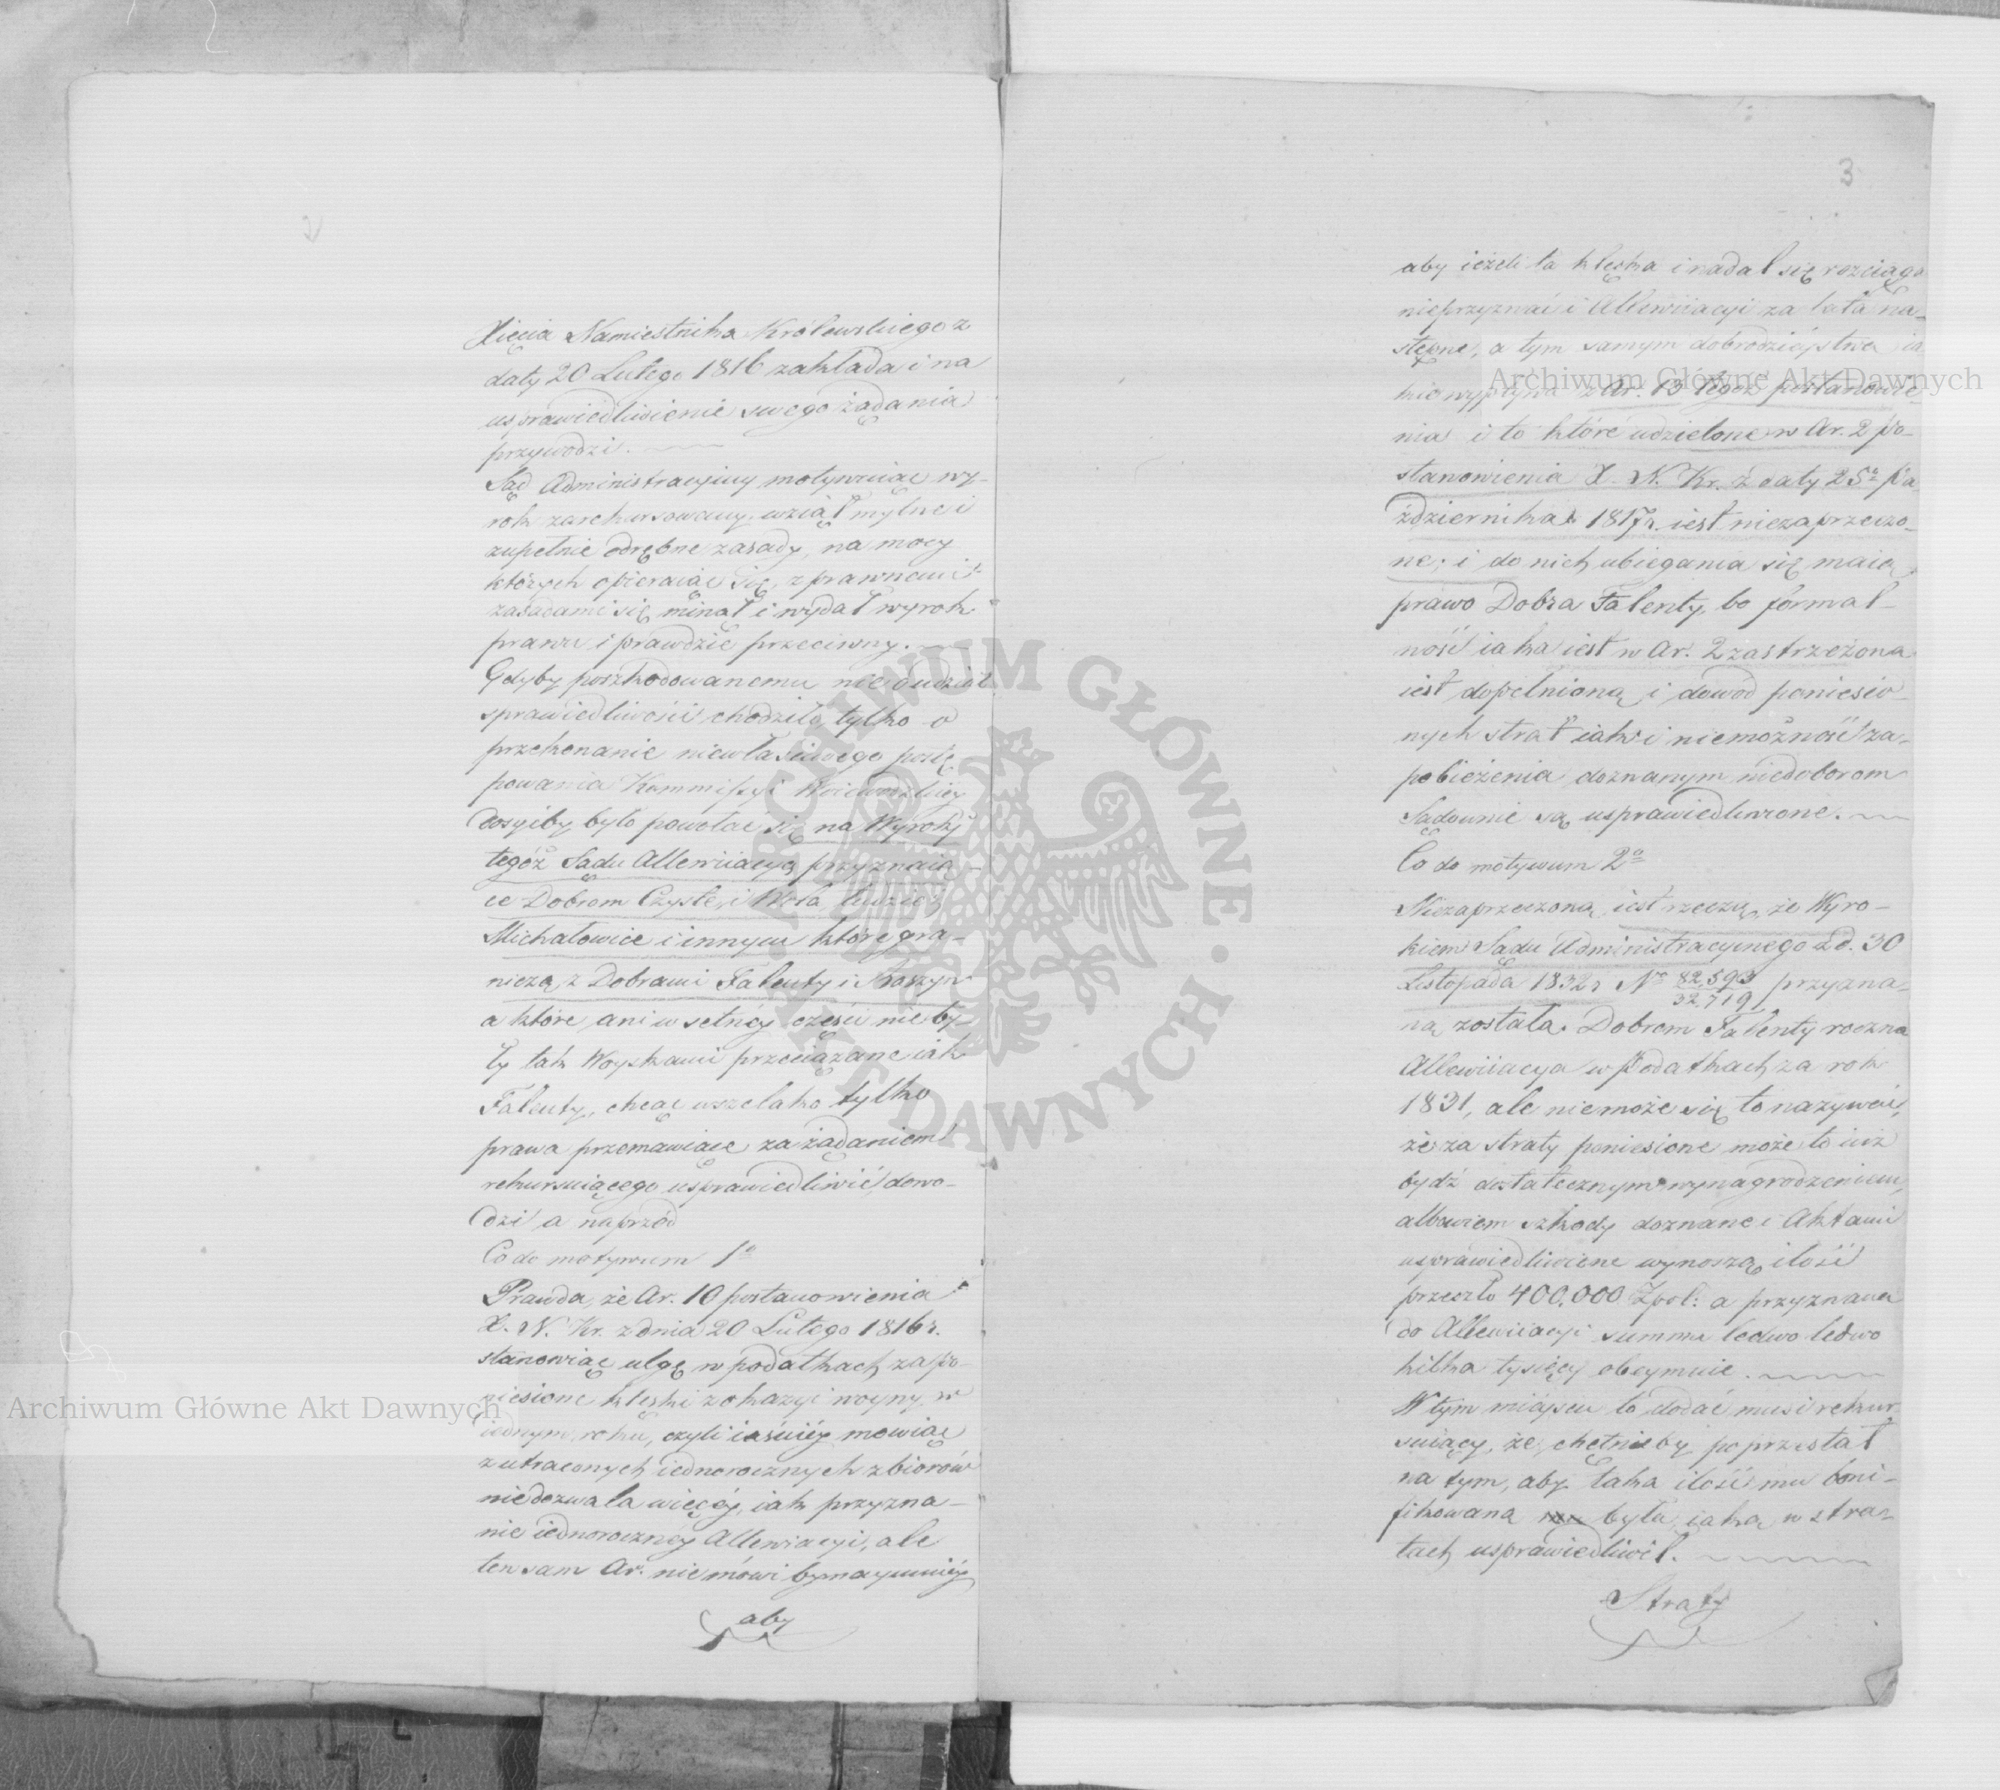 Xięcia Namiestnika Królewskiego z
daty 20 Lutego 1816 zakłada i na
usprawiedliwienie swego żądania
przywodzi.
Sąd Administracyiny motywuiąc wy-
rok zarekursowany, wziął mylne i
zupełnie odrębne zasady, na mocy
których opieraiąc się, z prawnemi
zasadami się minął i wydał wyrok
prawu i prawdzie przeciwny.
Gdyby poszkodowanemu nie o udział
sprawiedliwości chodziło, tylko o
przekonanie niewłaściwego postę
powania Kommissyi Woiewodzkiey
dosyćby było powołać się na Wyroki
tegóż Sądu Allewiiacyą przyznaią-
ce Dobrom Czyste, i Wola, tudzież
Michałowice i innym które gra-
niczą z Dobrami Falenty i Raszyn
a które, ani w setnéy części nieby-
ły tak Woyskami przeciążane iak
Falenty, chcąc wszelako tylko
prawa przemawiaiące za żądaniem
rekursuiącego usprawiedliwić, dowo-
dzi a naprzód
Co do motywum 1o
Prawda, że Ar. 10 postanowienia
X. N. Kr. z dnia 20 Lutego 1816 r.
stanowiąc ulgę w podatkach za po-
niesione klęski z okazyi woyny w
iednym roku, czyli iaśniéy mowiąc
z utraconych iednorocznych zbiorów
niedozwala więcéy, iak przyzna-
nie iednoroczney Allewiacyi, ale
ten sam Ar. nie mówi bynaymniéy
aby
3
aby ieżeli ta klęska i nadal się rozciąga
nieprzyznać i Allewiiacyi za lata na-
stępne, a tym samym dobrodzieystwa ia
kie wypływa z Ar. 13 tegoż postanowie-
nia i to które udzielone w Ar. 2 po-
stanowienia X. N. Kr. z daty 25o Pa-
ździernika 1817 r. iest niezaprzeczo-
ne; i do nich ubiegania się maią
prawo Dobra Falenty, bo formal-
ność iaka iest w Ar. 2 zastrzeżona
iest dopełnioną i dowód poniesio-
nych strat iak i niemożność za-
pobieżenia doznanym niedoborom
Sądownie są usprawiedliwione.
Co do motywum 2o
Niezaprzeczoną iest rzeczą, że Wyro-
kiem Sądu Administracyinego z d. 30
Listopada 1832 r No 82,593/32,719 przyzna-
ną została Dobrom Falenty roczna
Allewiiacya w Podatkach za rok
1831, ale niemoże się to nazywać,
że za straty poniesione może to iuż
bydź dostatecznym wynagrodzeniem,
albowiem szkody doznane i Aktami
usprawiedliwione wynoszą ilość
przeszło 400,000 Zpol: a przyznana
do Allewiiacyi summa ledwo ledwo
kilka tysięcy obeymuie.
W tym mieyscu to dodać musi rekur
suiący, że chętnieby poprzestał
na tym, aby taka ilość mu boni-
fikowana była iaką w stra-
tach usprawiedliwił.
Straty
Archiwum Główne Akt Dawnych
Archiwum Główne Akt Dawnych
ARCHIWUM GŁÓWNE · AKT DAWNYCH ·